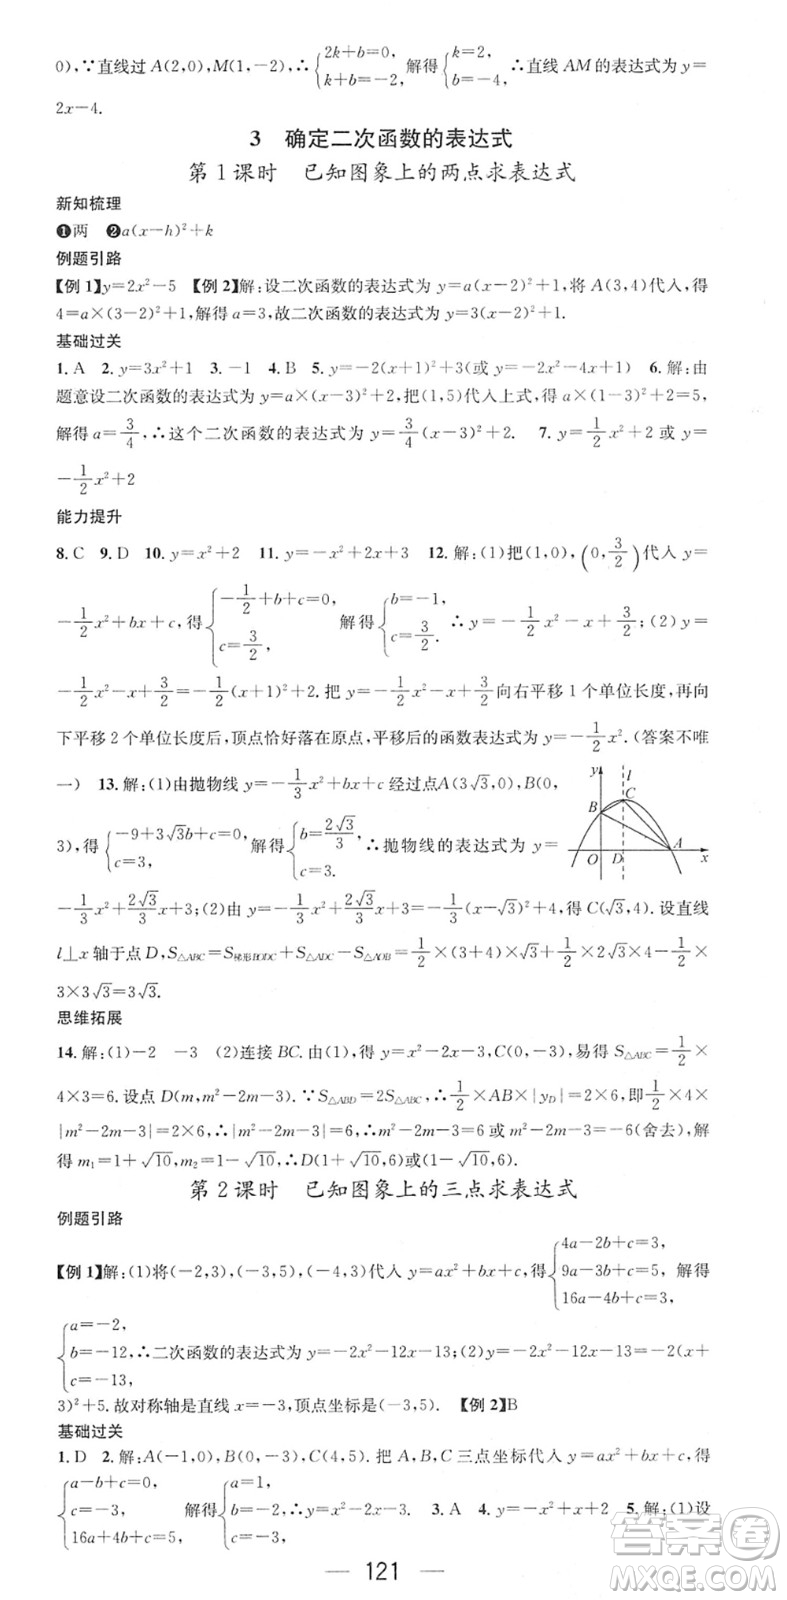 0),∵直线过 A(2,0),M(1,-2),∴{2k+b=0, k+b=-2, 解得{k=2, b=-4. ∴直线 AM 的表达式为 y=
2x-4.
3 确定二次函数的表达式
第1课时 已知图象上的两点求表达式
新知梳理
❶两 ❷a(x-h)²+k
例题引路
【例1】y=2x²-5 【例2】解:设二次函数的表达式为 y=a(x-2)²+1,将 A(3,4)代入,得
4=a×(3-2)²+1,解得 a=3,故二次函数的表达式为 y=3(x-2)²+1.
基础过关
1.A 2.y=3x²+1 3.-1 4.B 5.y=-2(x+1)²+3(或 y=-2x²-4x+1) 6.解:由
题意设二次函数的表达式为 y=a(x-3)²+2,把(1,5)代入上式,得 a×(1-3)²+2=5,
解得 a=3/4,∴这个二次函数的表达式为 y=3/4(x-3)²+2. 7.y=1/2x²+2 或 y=
-1/2x²+2
能力提升
8.C 9.D 10.y=x²+2 11.y=-x²+2x+3 12.解:(1)把(1,0),(0,3/2)代入 y=
-1/2x²+bx+c,得{-1/2+b+c=0, c=3/2, 解得{b=-1, c=3/2. ∴y=-1/2x²-x+3/2;(2)y=
-1/2x²-x+3/2=-1/2(x+1)²+2.把 y=-1/2x²-x+3/2向右平移1个单位长度,再向
下平移2个单位长度后,顶点恰好落在原点,平移后的函数表达式为 y=-1/2x².(答案不唯
一) 13.解:(1)由抛物线 y=-1/3x²+bx+c 经过点A(3√3,0),B(0,
3),得{-9+3√3b+c=0, c=3, 解得{b=2√3/3, c=3. ∴抛物线的表达式为 y=
y l B C O D A x
-1/3x²+2√3/3x+3;(2)由 y=-1/3x²+2√3/3x+3=-1/3(x-√3)²+4,得 C(√3,4).设直线
l⊥x 轴于点 D,S△ABC=S梯形BODC+S△ADC-S△AOB=1/2×(3+4)×√3+1/2×4×2√3-1/2×
3×3√3=3√3.
思维拓展
14.解:(1)-2 -3 (2)连接 BC.由(1),得 y=x²-2x-3,C(0,-3),易得 S△ABC=1/2×
4×3=6.设点 D(m,m²-2m-3).∵S△ABD=2S△ABC,∴1/2×AB×|yD|=2×6,即1/2×4×
|m²-2m-3|=2×6,∴|m²-2m-3|=6,∴m²-2m-3=6或m²-2m-3=-6(舍去),解
得 m₁=1+√10,m₂=1-√10,∴D(1+√10,6)或(1-√10,6).
第2课时 已知图象上的三点求表达式
例题引路
【例1】解:(1)将(-2,3),(-3,5),(-4,3)代入 y=ax²+bx+c,得{4a-2b+c=3, 9a-3b+c=5, 16a-4b+c=3, 解得
{a=-2, b=-12, c=-13, ∴二次函数的表达式为 y=-2x²-12x-13;(2)y=-2x²-12x-13=-2(x+
3)²+5.故对称轴是直线 x=-3,顶点坐标是(-3,5). 【例2】B
基础过关
1.D 2.解:A(-1,0),B(0,-3),C(4,5).把 A,B,C 三点坐标代入 y=ax²+bx+c,得
{a-b+c=0, c=-3, 16a+4b+c=5, 解得{a=1, b=-2, c=-3, ∴y=x²-2x-3. 3.A 4.y=-x²+x+2 5.解:(1)设
— 121 —
答案圈
MXQE.COM